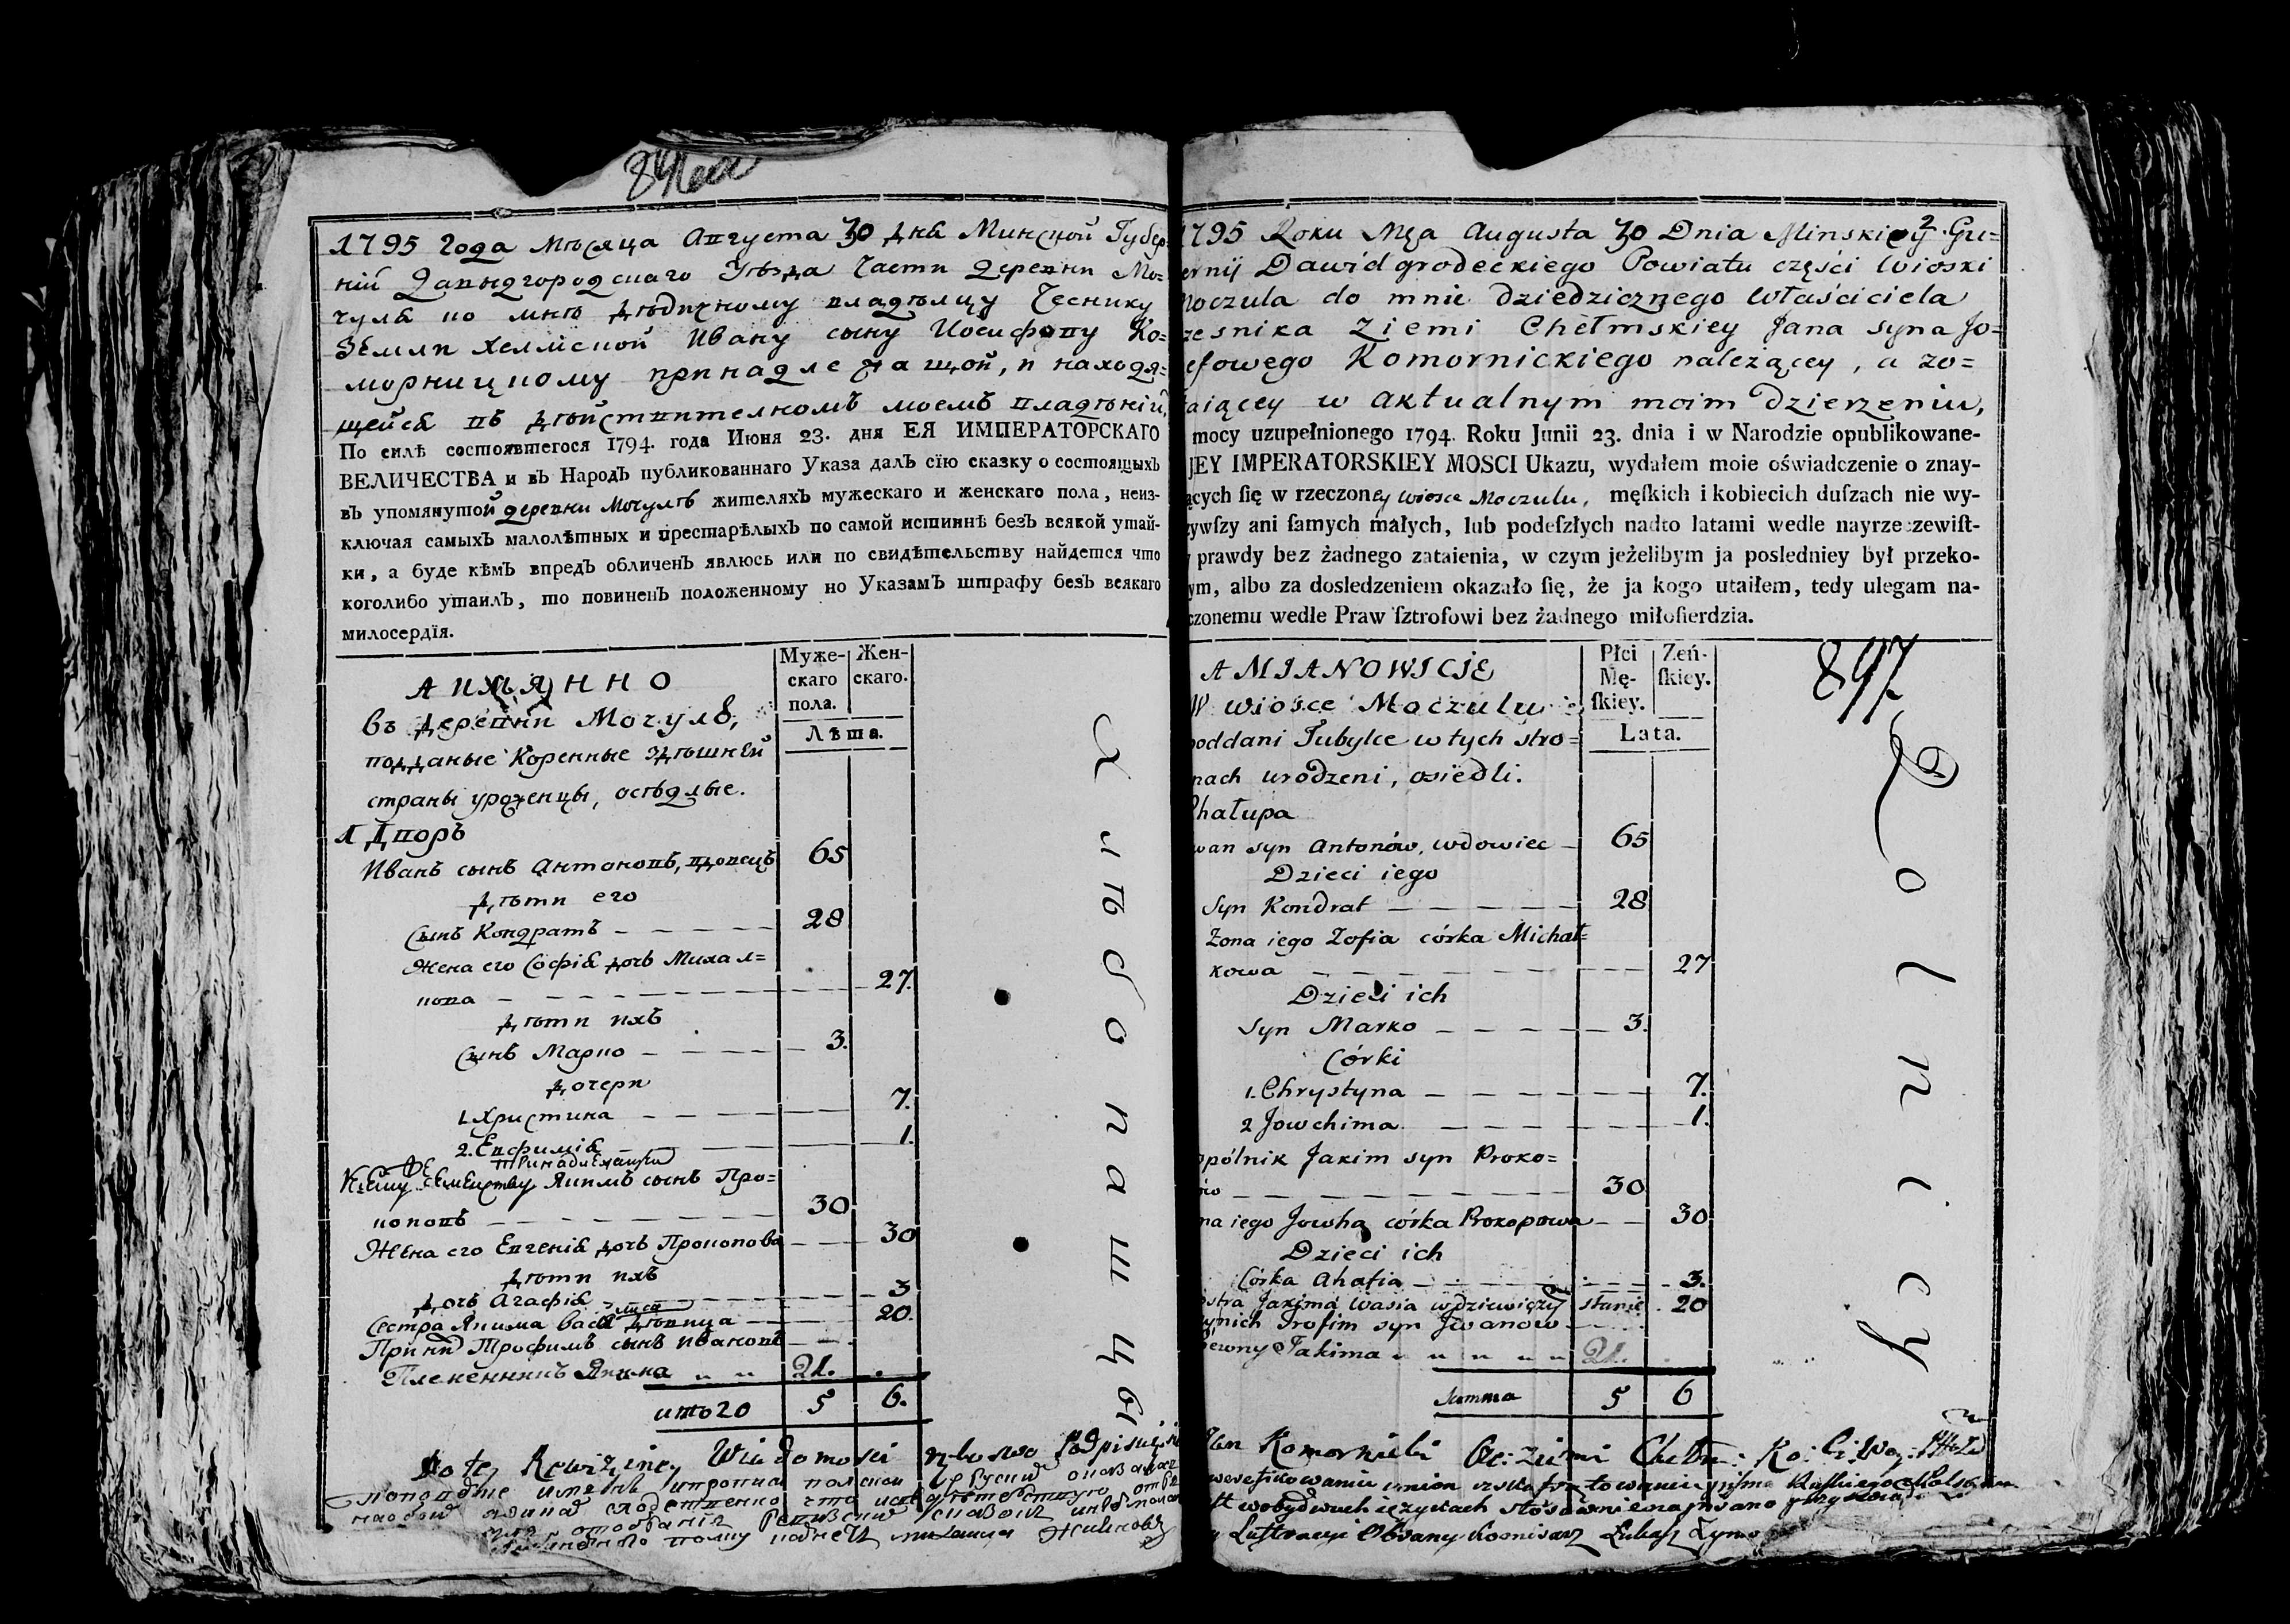 1795 Года Мѣсяца Августа 30 дня Минской Губер=
нїи Давыдгородскаго Уѣзда Части Деревни Мо=
чуля ко мнѣ дѣдичному владѣлцу Чеснику
Земли Хелмской Ивану сыну Иосифову Ко=
морницкому принадлежащой, и находя=
щейся въ дѣйствителномъ моемъ владѣнїи,
По силѣ состоявшегося 1794. года Июня 23. дня ЕЯ ИМПЕРАТОРСКАГО
ВЕЛИЧЕСТВА и въ Народъ публикованнаго Указа далъ сїю сказку о состоящыхъ
въ упомянутой деревни Мочулѣ жителяхъ мужескаго и женскаго пола, неиз-
ключая самыхъ малолѣтных и престарѣлыхъ по самой истиннѣ безъ всякой утай-
ки, а буде кѣмъ впредъ обличенъ явлюсь или по свидѣтельству найдется что
коголибо утаилъ, то повиненъ положенному по Указамъ штрафу безъ всякаго
милосердїя.
Муже-
скаго
пола.
Жен-
скаго.
Лѣта.
А ИМЯННО
въ деревни Мочулѣ,
подданые Коренные здѣшней
страны уроженцы, осѣдлые.
1 Дворъ
Иванъ сынъ Антоновъ, вдовецъ 65
Дѣти его
Сынъ Кондратъ 28
Жена его Софїя дочь Михал=
кова 27.
Дѣти ихъ
Сынъ Марко 3.
Дочери
1. Христина 7.
2. Евфимїя 1.
принадлежащи
Къ Сему Семейству Якимъ сынъ Про=
коповъ 30
Жена его Евгенїя дочь Прокопова 30
Дѣти ихъ
Дочь Агафїя 3
Сестра Якима Васса девица 20.
Трофимъ сынъ Ивановъ
Племенникъ Якима 21.
итого 5 6.
Хлѣбопашцы
Do tey Rewizyiney Wiadomości
1795 Roku Mca Augusta 30 Dnia Minskiey Gu=
ernij Dawidgrodeckiego Powiatu części Wioski
Moczula do mnie dziedzicznego właściciela
zesnika Ziemi Chełmskiey Jana syna Jo=
efowego Komornickiego należącey, a zo=
taiącey w aktualnym moim dzierzeniu,
mocy uzupełnionego 1794. Roku Junii 23. dnia i w Narodzie opublikowane-
JEY IMPERATORSKIEY MOSCI Ukazu, wydałem moie oświadczenie o znay-
ących ſię w rzeczoney wiosce Moczulu, męſkich i kobiecich duſzach nie wy-
zywſzy ani ſamych małych, lub podeſzłych nadto latami wedle nayrzeczewiſt-
prawdy bez żadnego zataienia, w czym jeżelibym ja posledniey był przeko-
ym, albo za dosledzeniem okazało ſię, że ja kogo utaiłem, tedy ulegam na-
czonemu wedle Praw ſztrofowi bez żadnego miłoſierdzia.
Płci
Mę-
ſkiey.
Zeń-
ſkiey.
Lata.
897
A MIANOWICIE
W wiosce Moczulu
poddani Tubylce w tych stro=
nach urodzeni, osiedli.
Chałupa
wan syn Antonów, wdowiec 65
Dzieci iego
Syn Kondrat 28
Zona iego Zofia córka Michał=
kowa 27
Dzieci ich
Syn Marko 3.
Córki
1. Chrystyna 7.
2 Jowchima 1.
pólnik Jakim syn Proko=
ów 30
na iego Jowha córka Prokopowa 30
Dzieci ich
Córka Ahafia 3.
ostra Jakima Wasia w dziewiczy stanie 20
Trofim syn Jwanow
ewny Jakima 21.
summa 5 6
Rolnicy
Jan Komornicki